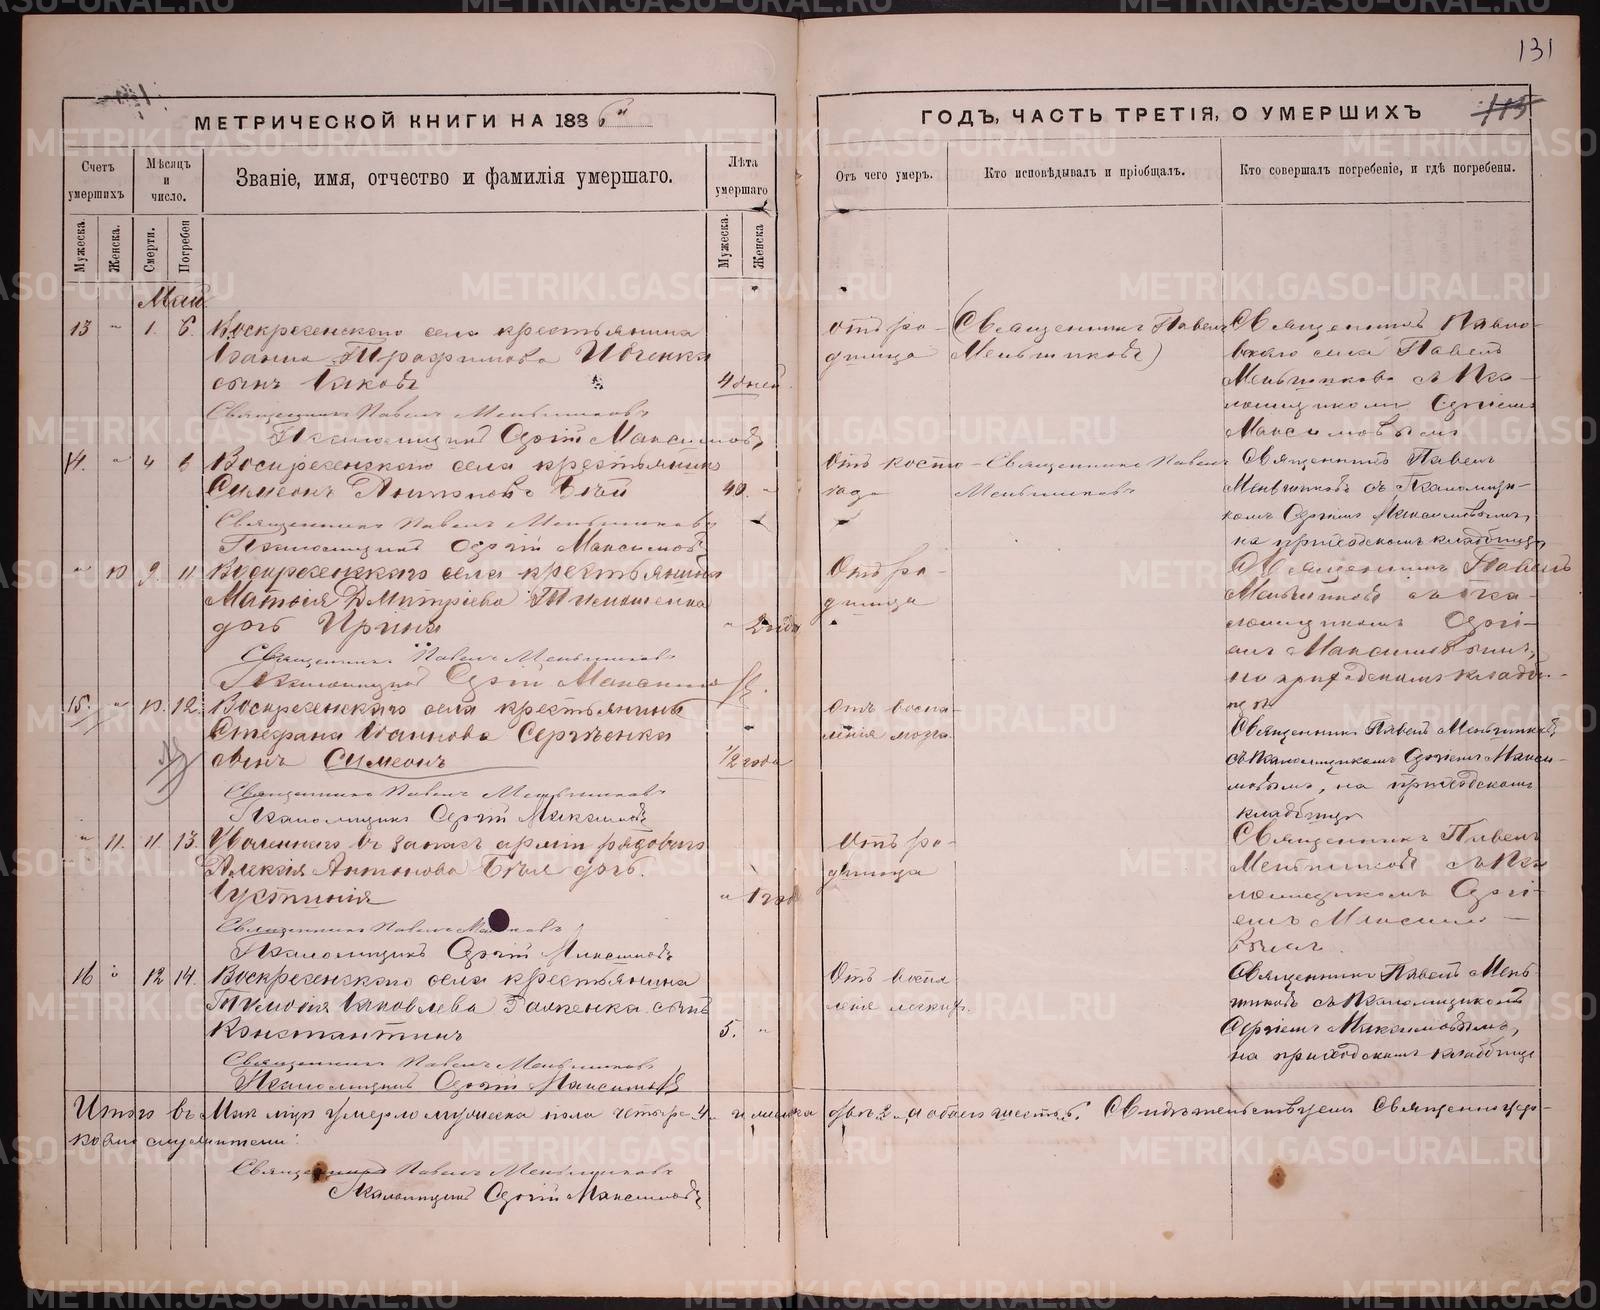 131
МЕТРИЧЕСКОЙ КНИГИ НА 1886
ГОДЪ, ЧАСТЬ ТРЕТІЯ, О УМЕРШИХЪ
115
Счетъ умершихъ
Мѣсяцъ и число.
Званіе, имя, отчество и фамилія умершаго.
Лѣта умершаго
Отъ чего умеръ.
Кто исповѣдывалъ и пріобщалъ.
Кто совершалъ погребеніе, и гдѣ погребены.
Мужеска.
Женска.
Смерти.
Погребен
Мужеска.
Женска
Май
13 " 1. 6. Воскресенскаго села крестьянина
Іоанна Трофимова Ивченка
сынъ Іаковъ 4 дней
отъ родимца
(Священникъ Павелъ
Меньшиковъ)
Священникъ
села Павелъ
Меньшиковъ съ Псаломщикомъ Сергіемъ
Максимовымъ
Священникъ Павелъ Меньшиковъ
Псаломщикъ Сергій Максимовъ
14. " 4 6 Воскресенскаго села крестьянинъ
Симеонъ Антоновъ 40. "
Отъ
Священникъ Павелъ
Меньшиковъ
Священникъ Павелъ
Меньшиковъ съ Псаломщикомъ Сергіемъ Максимовымъ,
на приходскомъ кладбищѣ
Священникъ Павелъ Меньшиковъ
Псаломщикъ Сергій Максимовъ
" 10 9. 11 Воскресенскаго села крестьянина
Матѳія Дмитріева Тимошенка
дочь Ирина " 2 года
Отъ родимца
Священникъ Павелъ
Меньшиковъ съ Псаломщикомъ Сергіемъ Максимовымъ,
на приходскомъ кладбищѣ
Священникъ Павелъ Меньшиковъ
Псаломщикъ Сергій Максимовъ
15. " 10. 12. Воскресенскаго села крестьянина
Стефана Іоаннова Сергѣенка
сынъ Симеонъ 1/2 года
Отъ воспаленія мозга
Священникъ Павелъ Меньшиковъ
съ Псаломщикомъ Сергіемъ Максимовымъ, на приходскомъ
кладбищѣ
Священникъ Павелъ Меньшиковъ
Псаломщикъ Сергій Максимовъ
" 11. 11. 13. Уволеннаго въ запасъ арміи рядоваго
Алексія Антонова дочь
Іустинія " 1 год
Отъ родимца
Священникъ Павелъ
Меньшиковъ съ Псаломщикомъ Сергіемъ Максимовымъ
Священникъ Павелъ
Псаломщикъ Сергій Максимовъ
16 " 12 14. Воскресенскаго села крестьянина
Тимоѳія Іаковлева сынъ
Константинъ 5. "
Отъ воспаленія легкихъ.
Священникъ Павелъ Меньшиковъ съ Псаломщикомъ
Сергіемъ Максимовымъ,
на приходскомъ кладбищѣ
Священникъ Павелъ Меньшиковъ
Псаломщикъ Сергій Максимовъ
Итого въ Маѣ м-цѣ умерло мужеска пола четыре 4 и женска две 2, а обоего шесть 6. Свидѣтельствуемъ Священноцерковнослужители:
Священникъ Павелъ Меньшиковъ
Псаломщикъ Сергій Максимовъ
METRIKI.GASO-URAL.RU